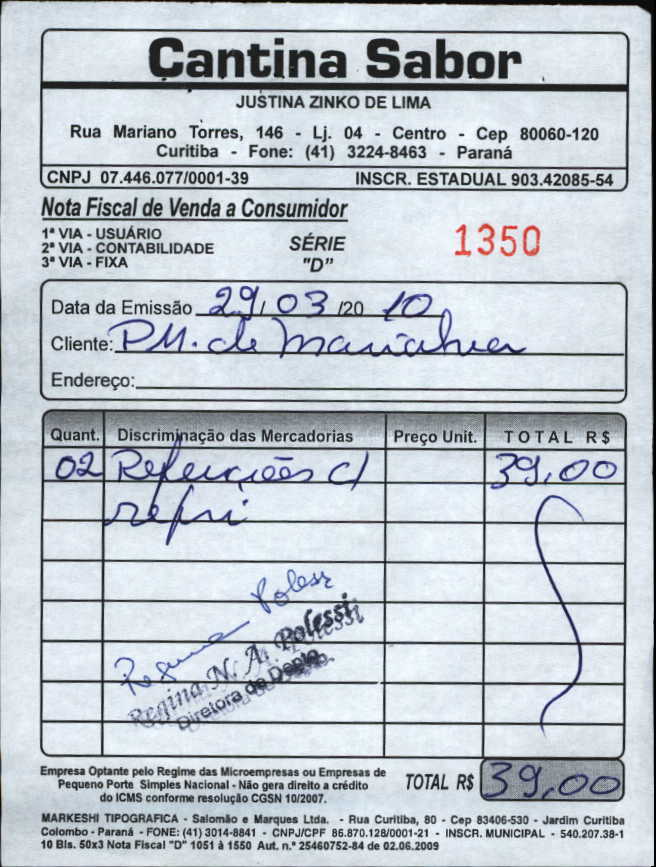 Cantina Sabor
JUSTINA ZINKO DE LIMA
Rua Mariano Torres, 146 - Lj. 04 - Centro - Cep 80060-120
Curitiba - Fone: (41) 3224-8463 - Paraná
CNPJ 07.446.077/0001-39 INSCR. ESTADUAL 903.42085-54
Nota Fiscal de Venda a Consumidor
1ª VIA - USUÁRIO
2ª VIA - CONTABILIDADE
3ª VIA - FIXA
SÉRIE
"D"
1350
Data da Emissão 29/03/2010
Cliente: P.M. de
Endereço:
Quant. Discriminação das Mercadorias Preço Unit. TOTAL R$
02 Refeições c/ 39,00
refri
Regina Polessi
Regina N. A. Polessi
Diretora de Depto.
Empresa Optante pelo Regime das Microempresas ou Empresas de
Pequeno Porte Simples Nacional - Não gera direito a crédito
do ICMS conforme resolução CGSN 10/2007.
TOTAL R$ 39,00
MARKESHI TIPOGRAFICA - Salomão e Marques Ltda. - Rua Curitiba, 80 - Cep 83406-530 - Jardim Curitiba
Colombo - Paraná - FONE: (41) 3014-8841 - CNPJ/CPF 86.870.128/0001-21 - INSCR. MUNICIPAL - 540.207.38-1
10 Bls. 50x3 Nota Fiscal "D" 1051 à 1550 Aut. n.º 25460752-84 de 02.06.2009